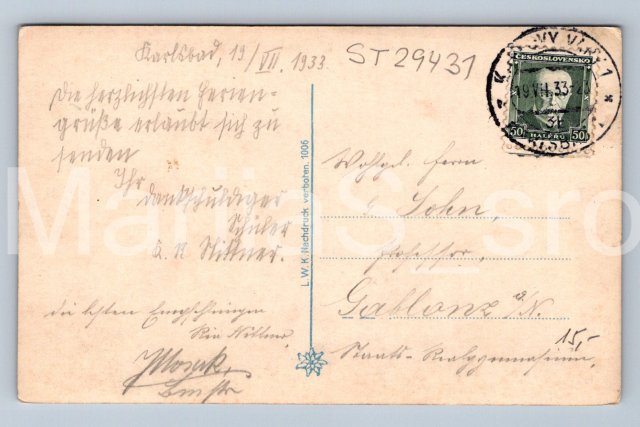 Karlsbad, 19/VII. 1933
ST 29431
Die herzlichsten Ferien-
grüße erlaubt sich zu
senden
Ihr
dankschuldiger
Schüler
K. N. Nittner.
die besten Empfehlungen
Ria Nittner,
L. W. K. Nachdruck verboten. 1006
KARLOVY VARY 1
19.VII.33
3f
ČESKOSLOVENSKO
50 HALÉŘŮ 50
Wohlgeb. Herrn
Sohn,
Professor,
Gablonz a/N.
Staats-Realgymnasium,
15,-
MarijanS_sro